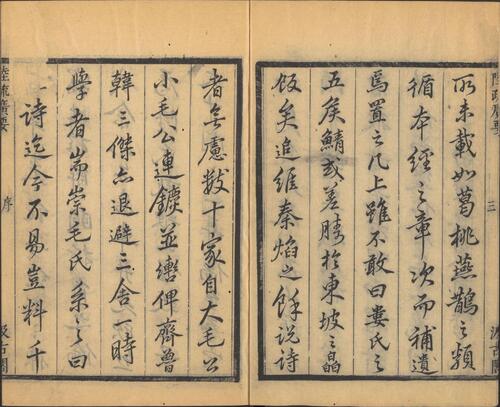 陸疏廣要
三
汲古閣
所未載如葛桃燕鵲之類
循本經之章次而補遺
焉置之几上雖不敢曰婁氏之
五矦鯖或差勝於東坡之皛
飯矣追維秦焰之餘說詩
者無慮數十家自大毛公
小毛公連鑣並轡俾齊魯
韓三傑亦退避三舍一時
學者耑崇毛氏系之曰
〻詩迄今不易豈料千
陸疏廣要
序
汲古閣